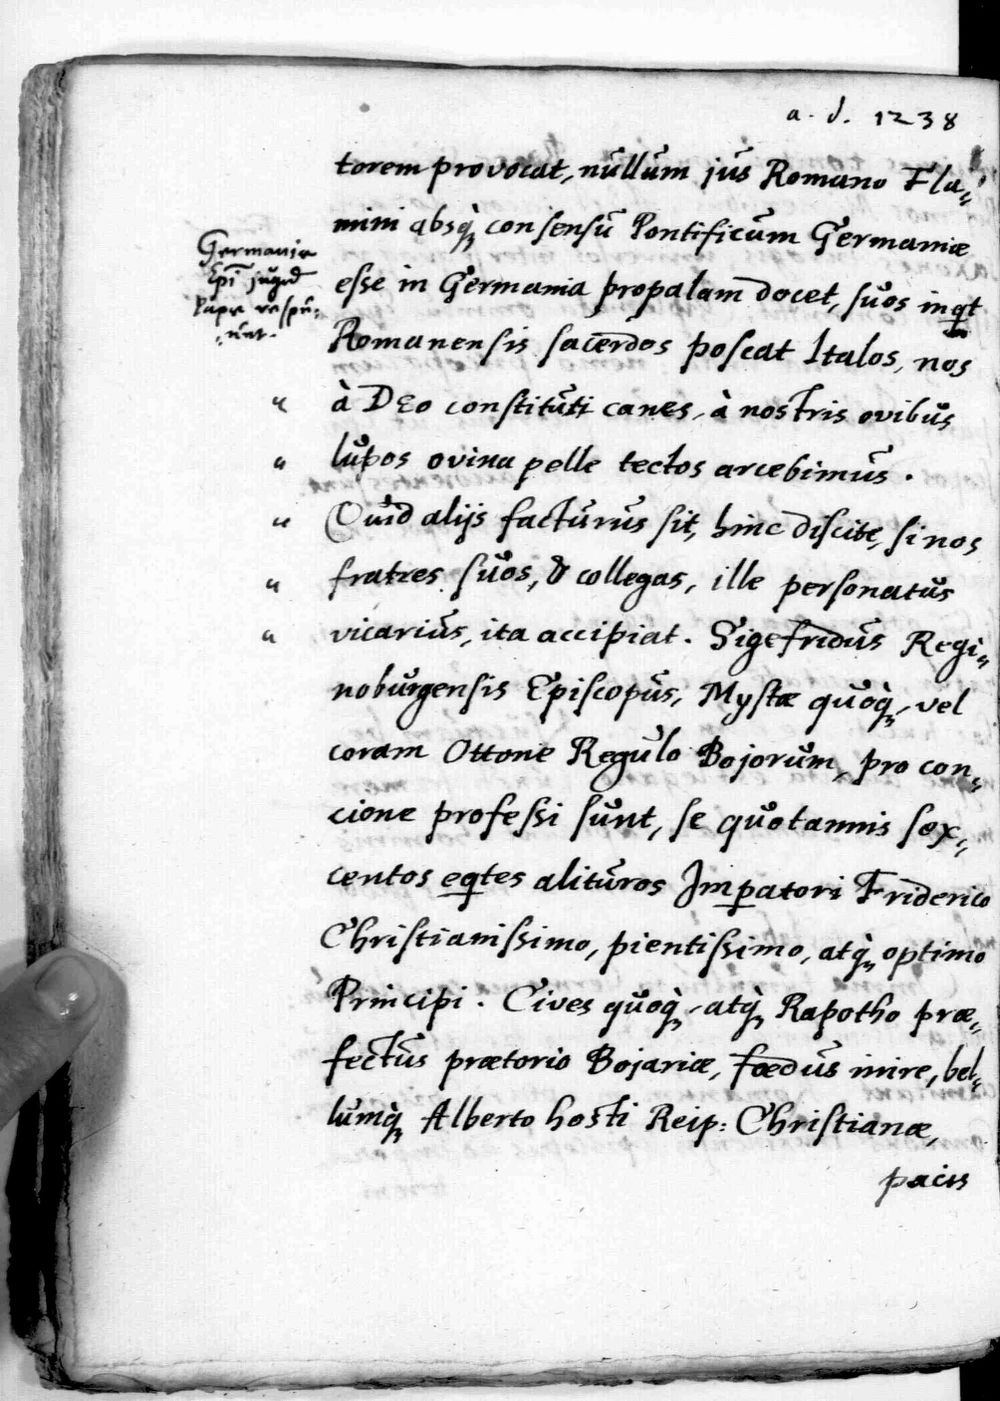 a. d. 1238
torem provocat, nullum jus Romano Fla„
mini absq́ꝫ consensu Pontificum Germaniæ
Germaniæ
Epī jugū
Papæ respu„
„unt.
esse in Germania propalam docet, suos inqt
Romanensis sacerdos poscat Italos, nos
„ à DEo constituti canes, à nostris ovibus
„ lupos ovina pelle tectos arcebimus.
„ Quid alijs facturus sit, hinc discite, si nos
„ fratres suos, & collegas, ille personatus
„ vicarius, ita accipiat. Sigefridus Regi„
noburgensis Episcopus, Mystæ quoq́ꝫ, vel
coram Ottone Regulo Bojorum, pro con„
cione professi sunt, se quotannis sex„
centos eqtes alituros Imꝑatori Friderico
Christianissimo, pientissimo, atq́ꝫ optimo
Principi. Cives quoq́ꝫ, atq́ꝫ Rapotho præ„
fectus prætorio Bojariæ, fœdus inire, bel„
lumq́ꝫ Alberto hosti Reip: Christianæ,
pacis